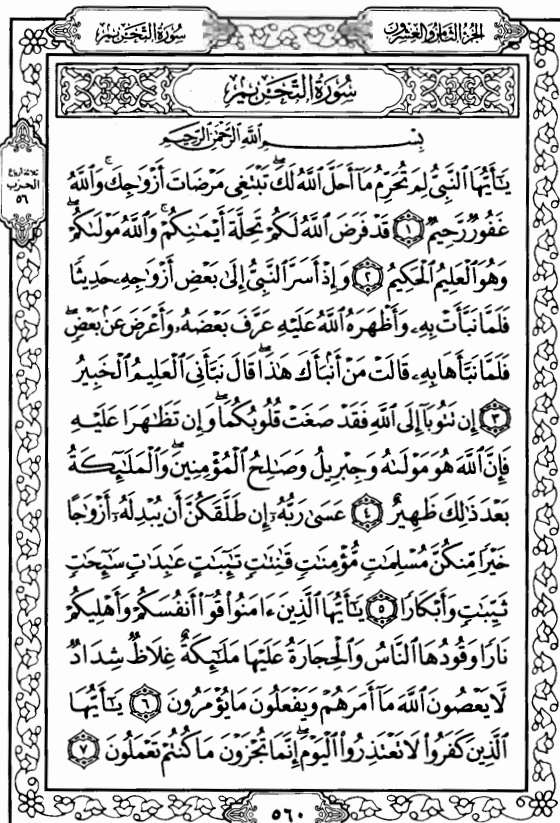 الجزء الثامن والعشرون
سورة التحريم
سُورَةُ التَّحْرِيمِ
بِسْمِ اللَّهِ الرَّحْمَٰنِ الرَّحِيمِ
ثلاثة أرباع
الحزب
٥٦
يَـٰٓأَيُّهَا ٱلنَّبِىُّ لِمَ تُحَرِّمُ مَآ أَحَلَّ ٱللَّهُ لَكَ ۖ تَبْتَغِى مَرْضَاتَ أَزْوَٰجِكَ ۚ وَٱللَّهُ
غَفُورٌ رَّحِيمٌ ١ قَدْ فَرَضَ ٱللَّهُ لَكُمْ تَحِلَّةَ أَيْمَـٰنِكُمْ ۚ وَٱللَّهُ مَوْلَىٰكُمْ ۖ
وَهُوَ ٱلْعَلِيمُ ٱلْحَكِيمُ ٢ وَإِذْ أَسَرَّ ٱلنَّبِىُّ إِلَىٰ بَعْضِ أَزْوَٰجِهِۦ حَدِيثًا
فَلَمَّا نَبَّأَتْ بِهِۦ وَأَظْهَرَهُ ٱللَّهُ عَلَيْهِ عَرَّفَ بَعْضَهُۥ وَأَعْرَضَ عَنۢ بَعْضٍ ۖ
فَلَمَّا نَبَّأَهَا بِهِۦ قَالَتْ مَنْ أَنۢبَأَكَ هَـٰذَا ۖ قَالَ نَبَّأَنِىَ ٱلْعَلِيمُ ٱلْخَبِيرُ
٣ إِن تَتُوبَآ إِلَى ٱللَّهِ فَقَدْ صَغَتْ قُلُوبُكُمَا ۖ وَإِن تَظَـٰهَرَا عَلَيْهِ
فَإِنَّ ٱللَّهَ هُوَ مَوْلَىٰهُ وَجِبْرِيلُ وَصَـٰلِحُ ٱلْمُؤْمِنِينَ ۖ وَٱلْمَلَـٰٓئِكَةُ
بَعْدَ ذَٰلِكَ ظَهِيرٌ ٤ عَسَىٰ رَبُّهُۥٓ إِن طَلَّقَكُنَّ أَن يُبْدِلَهُۥٓ أَزْوَٰجًا
خَيْرًا مِّنكُنَّ مُسْلِمَـٰتٍ مُّؤْمِنَـٰتٍ قَـٰنِتَـٰتٍ تَـٰٓئِبَـٰتٍ عَـٰبِدَٰتٍ سَـٰٓئِحَـٰتٍ
ثَيِّبَـٰتٍ وَأَبْكَارًا ٥ يَـٰٓأَيُّهَا ٱلَّذِينَ ءَامَنُوا۟ قُوٓا۟ أَنفُسَكُمْ وَأَهْلِيكُمْ
نَارًا وَقُودُهَا ٱلنَّاسُ وَٱلْحِجَارَةُ عَلَيْهَا مَلَـٰٓئِكَةٌ غِلَاظٌ شِدَادٌ
لَّا يَعْصُونَ ٱللَّهَ مَآ أَمَرَهُمْ وَيَفْعَلُونَ مَا يُؤْمَرُونَ ٦ يَـٰٓأَيُّهَا
ٱلَّذِينَ كَفَرُوا۟ لَا تَعْتَذِرُوا۟ ٱلْيَوْمَ ۖ إِنَّمَا تُجْزَوْنَ مَا كُنتُمْ تَعْمَلُونَ ٧
٥٦٠